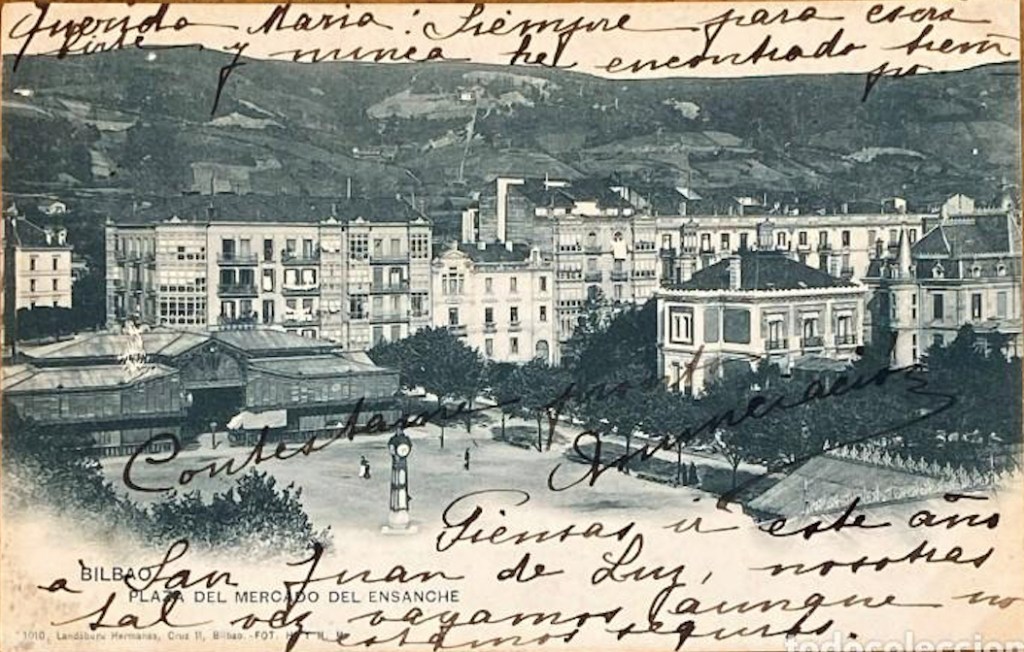 Querida Maria: Siempre para escri
birte y nunca he encontrado tiem
po
Contestame pront
Anunciación
Piensas ir este año
a San Juan de Luz, nosotras
tal vez vayamos aunque no
estamos seguras.
BILBAO
PLAZA DEL MERCADO DEL ENSANCHE
1010. Landáburu Hermanas, Cruz 11, Bilbao.-FOT. H. Y M. M.
todocoleccion